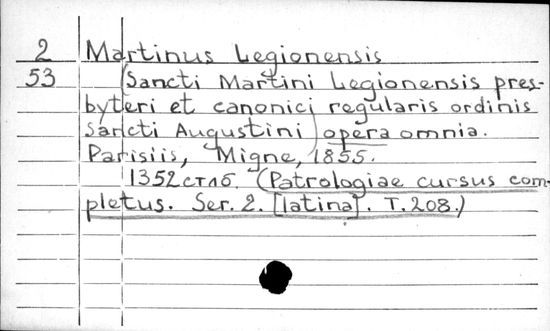 2 Martinus Legionensis
53 (Sancti Martini Legionensis pres-
byteri et canonici regularis ordinis
Sancti Augustini) opera omnia.
Parisiis, Migne, 1855.
1352 стлб. (Patrologiae cursus com-
pletus. Ser. 2. [latina]. T. 208.)